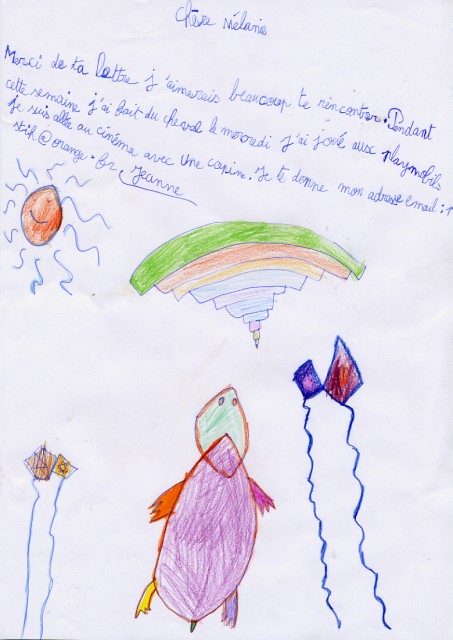 Chère Mélanie
Merci de ta lettre j'aimerais beaucoup te rencontrer. Pendant
cette semaine j'ai fait du cheval le mercredi j'ai joué aux playmobils
Je suis allée au cinéma avec une copine. Je te donne mon adresse email :
stik@orange.fr Jeanne